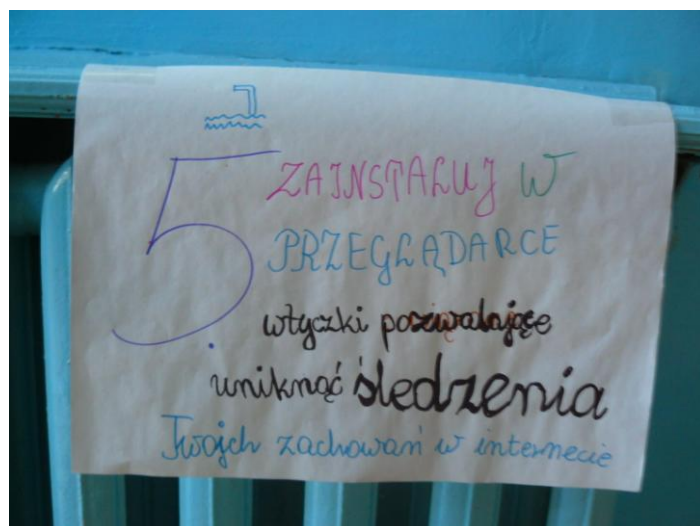 5. ZAINSTALUJ W
PRZEGLĄDARCE
wtyczki pozwalające
uniknąć śledzenia
Twoich zachowań w internecie